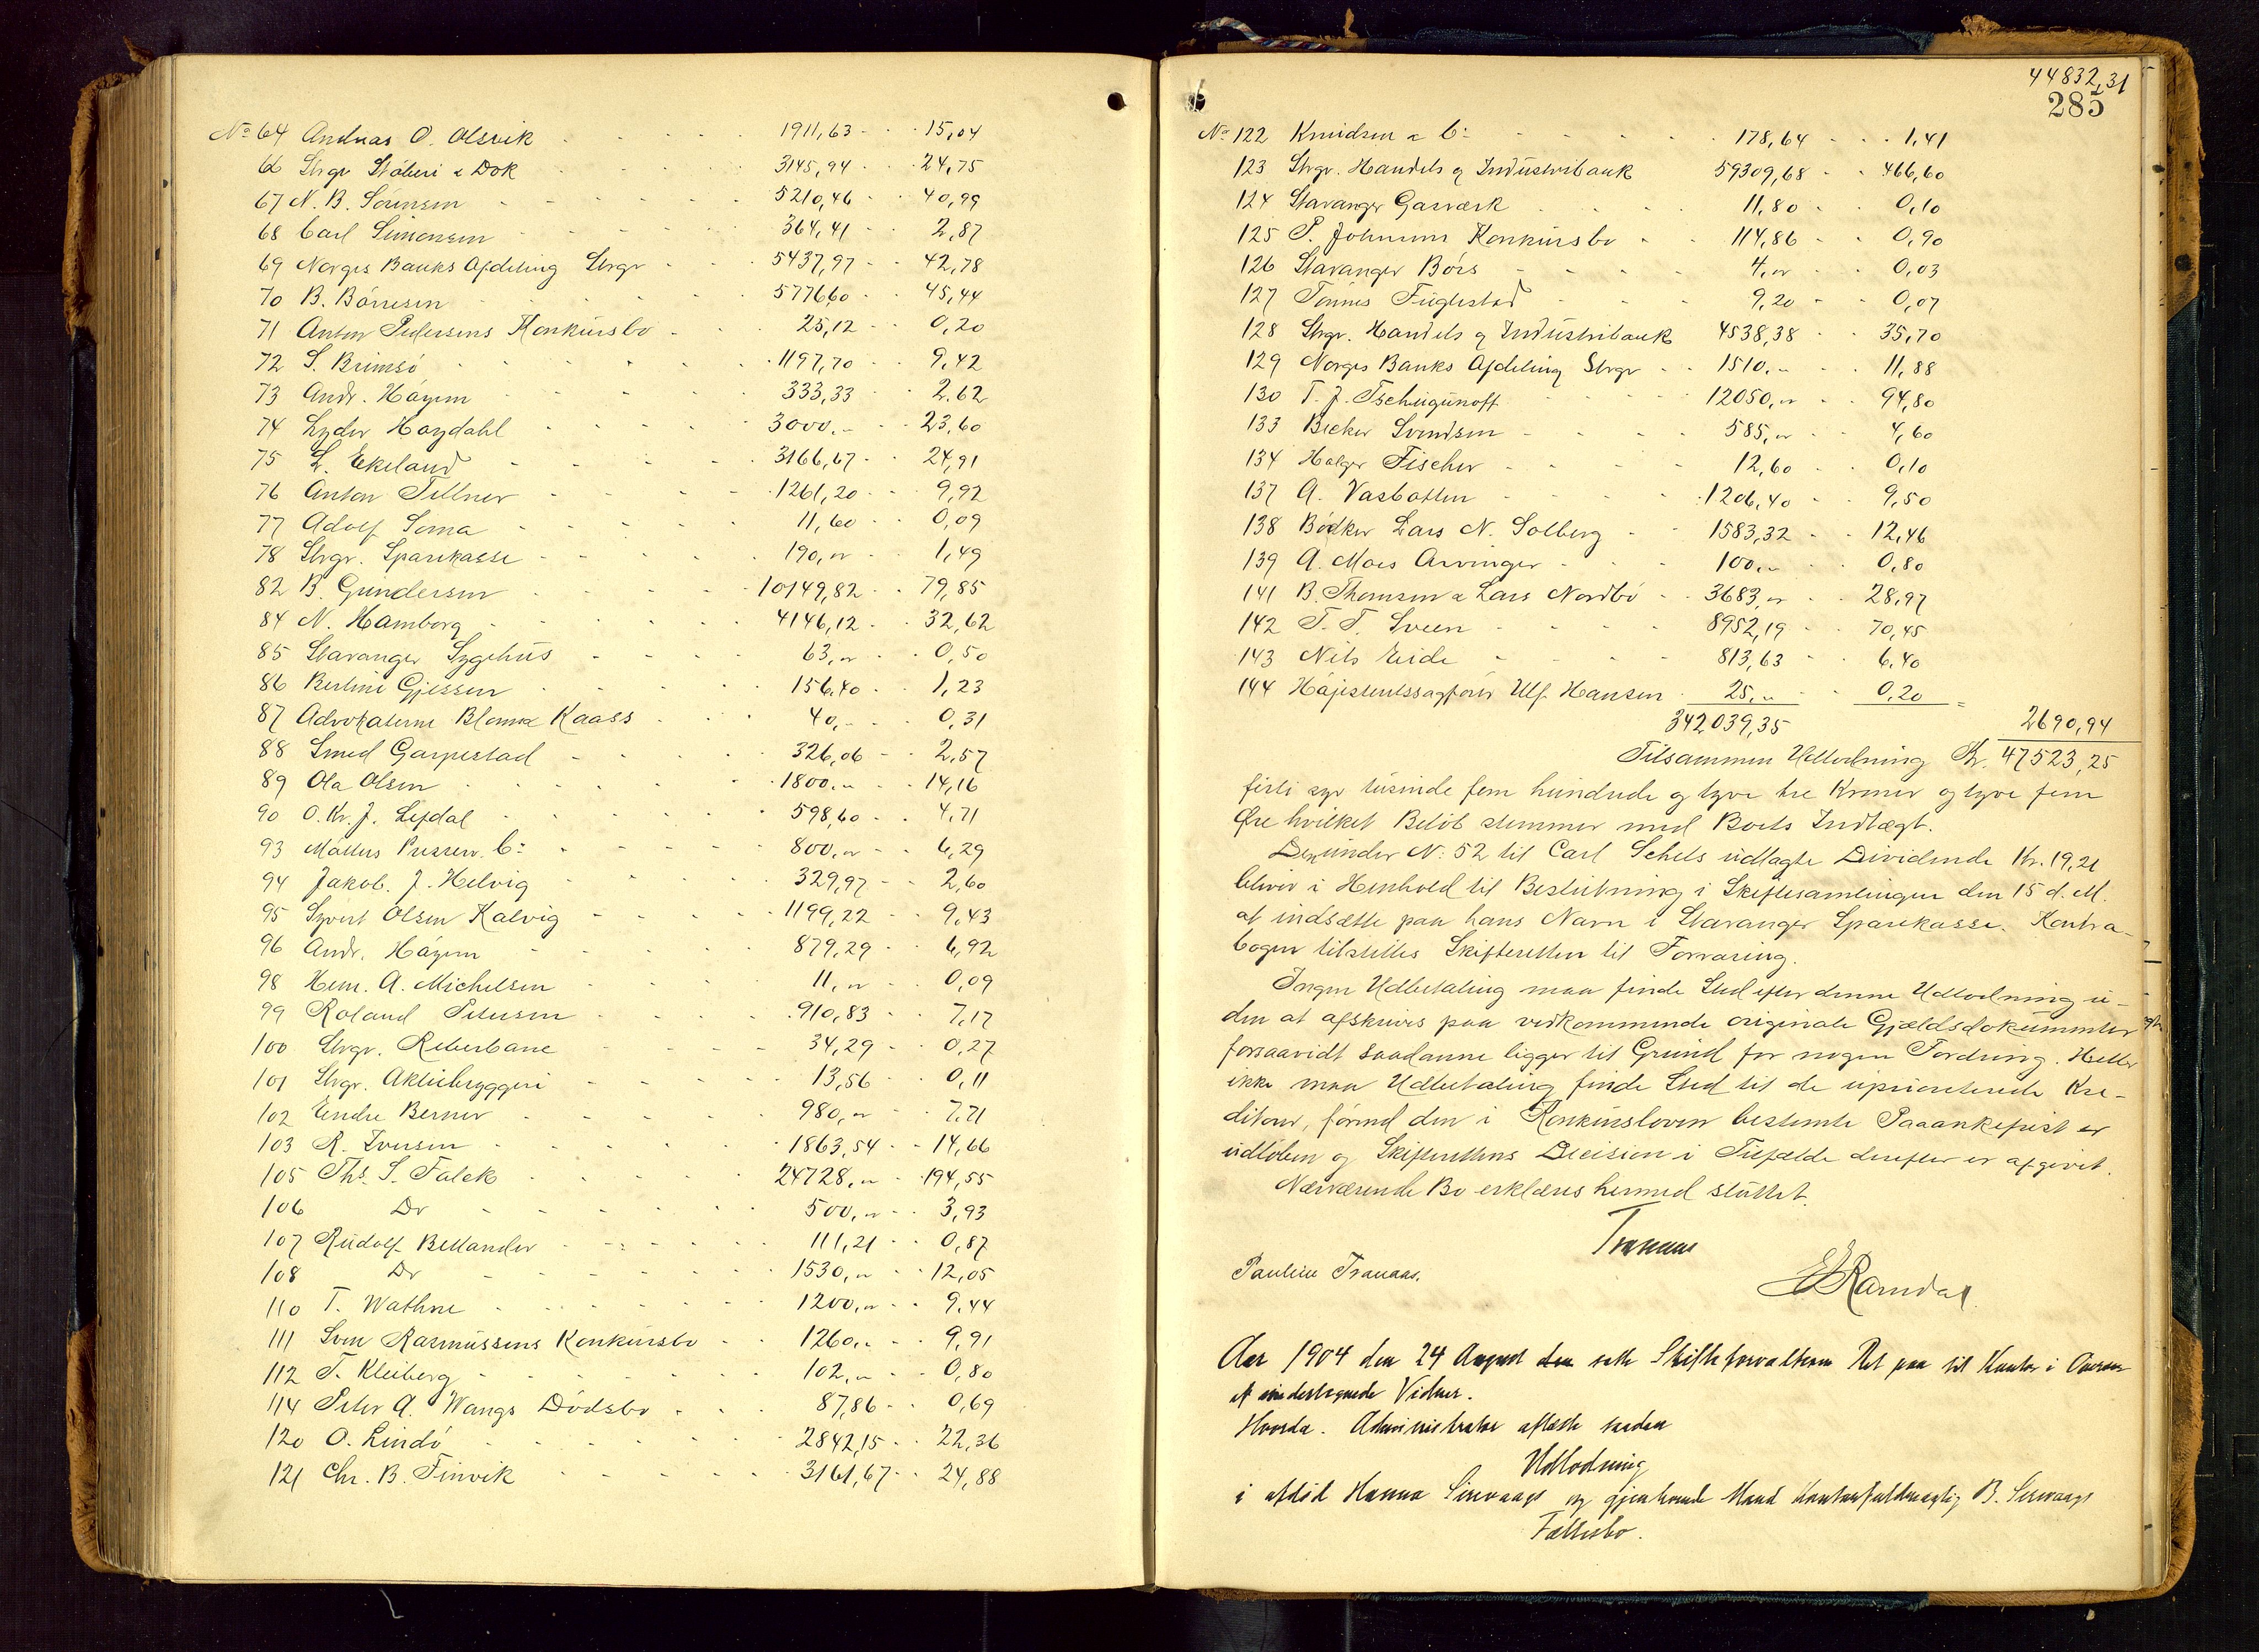 No 64 Andreas O. Olsvik 1911,63 15,04
66 Strgr Støberi & Dok 3145,94 24,75
67 N. B. Sörensen 5210,46 40,99
68 Carl Simonsen 364,41 2,87
69 Norges Banks Afdeling Strgr 5437,97 42,78
70 B. Börresen 5776,60 45,44
71 Anton Pedersens Konkursbo 25,12 0,20
72 S. Brimsö 1197,70 9,42
73 Andr. Höyem 333,33 2,62
74 Lyder Høydahl 3000,- 23,60
75 L. Ekeland 3166,67 24,91
76 Anton Tellner 1261,20 9,92
77 Adolf Soma 11,60 0,09
78 Strgr. Sparekasse 190,- 1,49
82 B. Gundersen 10149,82 79,85
84 N. Hamborg 4146,12 32,62
85 Stavanger Sygehus 63,- 0,50
86 Berline Gjessen 156,40 1,23
87 Advokaterne Blom & Kaass 40,- 0,31
88 Smed Garpestad 326,06 2,57
89 Ola Olsen 1800,- 14,16
90 O. Kr. J. Lefdal 598,60 4,71
93 Møllers Preserv. Co: 800,- 6,29
94 Jakob J. Helvig 329,97 2,60
95 Syvert Olsen Kalvig 1199,22 9,43
96 Andr. Höyem 879,29 6,92
98 Hem. A. Michelsen 11,- 0,09
99 Roland Petersen 910,83 7,17
100 Strgr. Reberbane 34,29 0,27
101 Strgr. Aktiebryggeri 13,56 0,11
102 Endre Berner 980,- 7,71
103 R. Iversen 1863,54 14,66
105 Ths. S. Falck 24728,- 194,55
106 Do 500,- 3,93
107 Rudolf Bellander 111,21 0,87
108 Do 1530,- 12,05
110 T. Wathne 1200,- 9,44
111 Sven Rasmussens Konkursbo 1260,- 9,91
112 T. Kleiberg 102,- 0,80
114 Peter A. Wangs Dödsbo 87,86 0,69
120 O. Lindö 2842,15 22,36
121 Chr. B. Finvik 3161,67 24,88
44832,31
285
No 122 Knudsen & Co: 178,64 1,41
123 Strgr. Handels og Industribank 59309,68 466,60
124 Stavanger Gasværk 11,80 0,10
125 P. Johnsens Konkursbo 114,86 0,90
126 Stavanger Börs 4,- 0,03
127 Tönnes Fuglestad 9,20 0,07
128 Strgr. Handels og Industribank 4538,38 35,70
129 Norges Banks Afdeling Strgr 1510,- 11,88
130 T. J. Tschugunoff 12050,- 94,80
133 Becker Svendsen 585,- 4,60
134 Holger Fischer 12,60 0,10
137 A. Vasbotten 1206,40 9,50
138 Bödker Lars N. Solberg 1583,32 12,46
139 A. Moes Arvinger 100,- 0,80
141 B. Thomsen & Lars Nordbö 3683,- 28,97
142 T. T. Sveen 8952,19 70,45
143 Nils Eide 813,63 6,40
144 Höjesteretssagförer Ulf Hansen 25,- 0,20 =
342039,35 2690,94
Tilsammen Udlodning Kr. 47523,25
firti syv tusinde fem hundrede og tyve tre Kroner og tyve fem
Øre hvilket Belöb stemmer med Boets Indtægt.
Den under No: 52 til Carl Schels udlagte Dividende Kr. 19,21
bliver i Henhold til Beslutning i Skiftesamlingen den 15 d. M.
at indsætte paa hans Navn i Stavanger Sparekasse. Kontra-
bogen tilstilles Skifteretten til Forvaring.
Ingen Udbetaling maa finde Sted efter denne Udlodning u-
den at afskrives paa vedkommende originale Gjældsdokumenter
forsaavidt saadanne ligger til Grund for nogen Fordring. Heller
ikke maa Udbetaling finde Sted til de uprioriterede Kre-
ditorer, förend den i Konkursloven bestemte Paaankefrist er
udlöben og Skifterettens Decision i Tilfælde derefter er afgivet.
Nærværende Bo erklæres hermed sluttet.
Tranaas
Pauline Tranaas.
Ramdal
Aar 1904 den 24 August satte Skifteforvalteren Ret paa sit Kontor i Overvær
af undertegnede Vidner.
Hvorda. Administrator aflæste saadan
Udlodning
i afdöd Hanna Sirevaags og gjenlevende Mand Kontorfuldmægtig B. Sirevaags
Fællesbo.